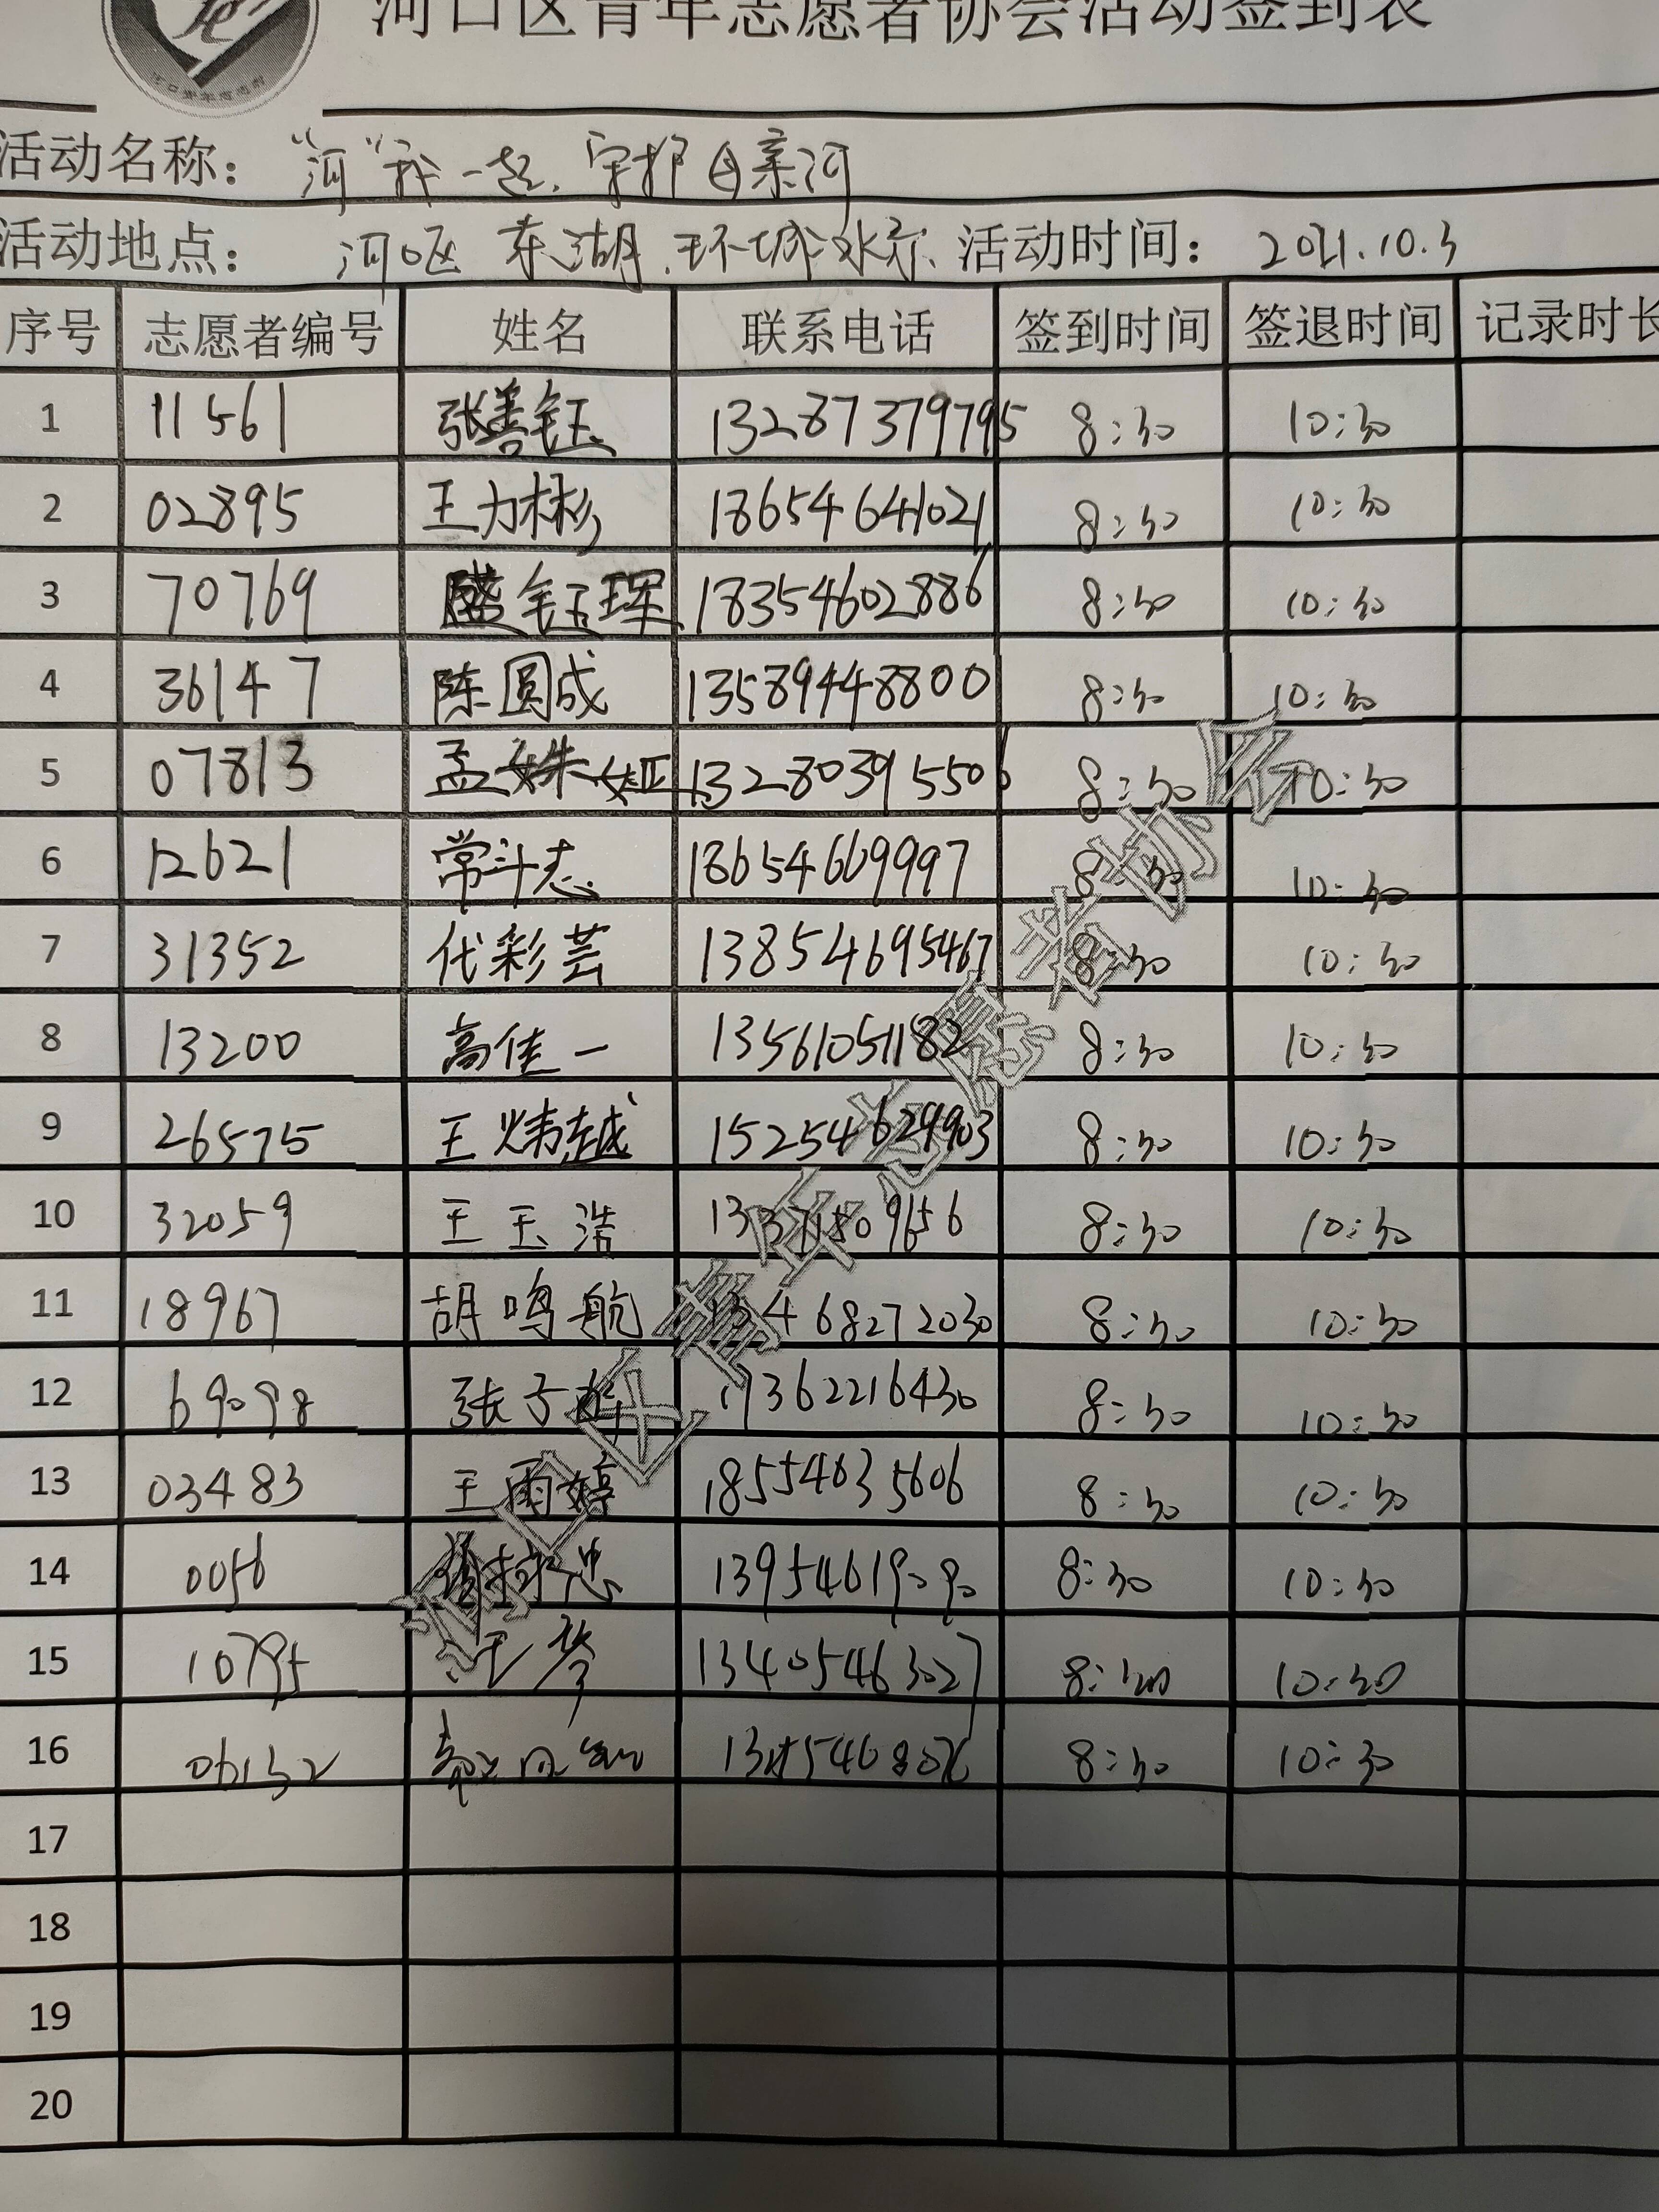 河口区青年志愿者协会活动签到表
活动名称： “河”我一起，守护母亲河
活动地点： 河口区东湖、环城水系 活动时间： 2021.10.3
序号 志愿者编号 姓名 联系电话 签到时间 签退时间 记录时长
1 11561 张善钰 13287379795 8:30 10:30
2 02895 王力彬 18654641021 8:30 10:30
3 70769 盛钰珲 18354602886 8:30 10:30
4 36147 陈圆成 13589448800 8:30 10:30
5 07813 孟姝娅 13280395506 8:30 10:30
6 12621 常斗志 18654669997 8:30 10:30
7 31352 代彩芸 13854695467 8:30 10:30
8 13200 高佳一 13561051182 8:30 10:30
9 26575 王炜越 15254629903 8:30 10:30
10 32059 王玉浩 13371509656 8:30 10:30
11 18967 胡鸣航 15468272030 8:30 10:30
12 69098 张子 17362216430 8:30 10:30
13 03483 王雨婷 18554635606 8:30 10:30
14 0056 忠 13954619090 8:30 10:30
15 10795 琴 13405463027 8:30 10:30
16 06132 8:30 10:30
17
18
19
20
河口区青年志愿者协会